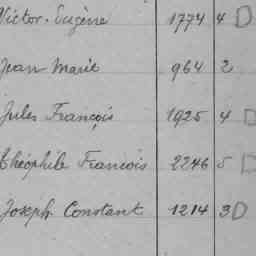 Victor-Eugène 1774 4 D
Jean Marie 964 2
Jules François 1925 4 D
Théophile François 2246 5 D
Joseph Constant 1214 3 D